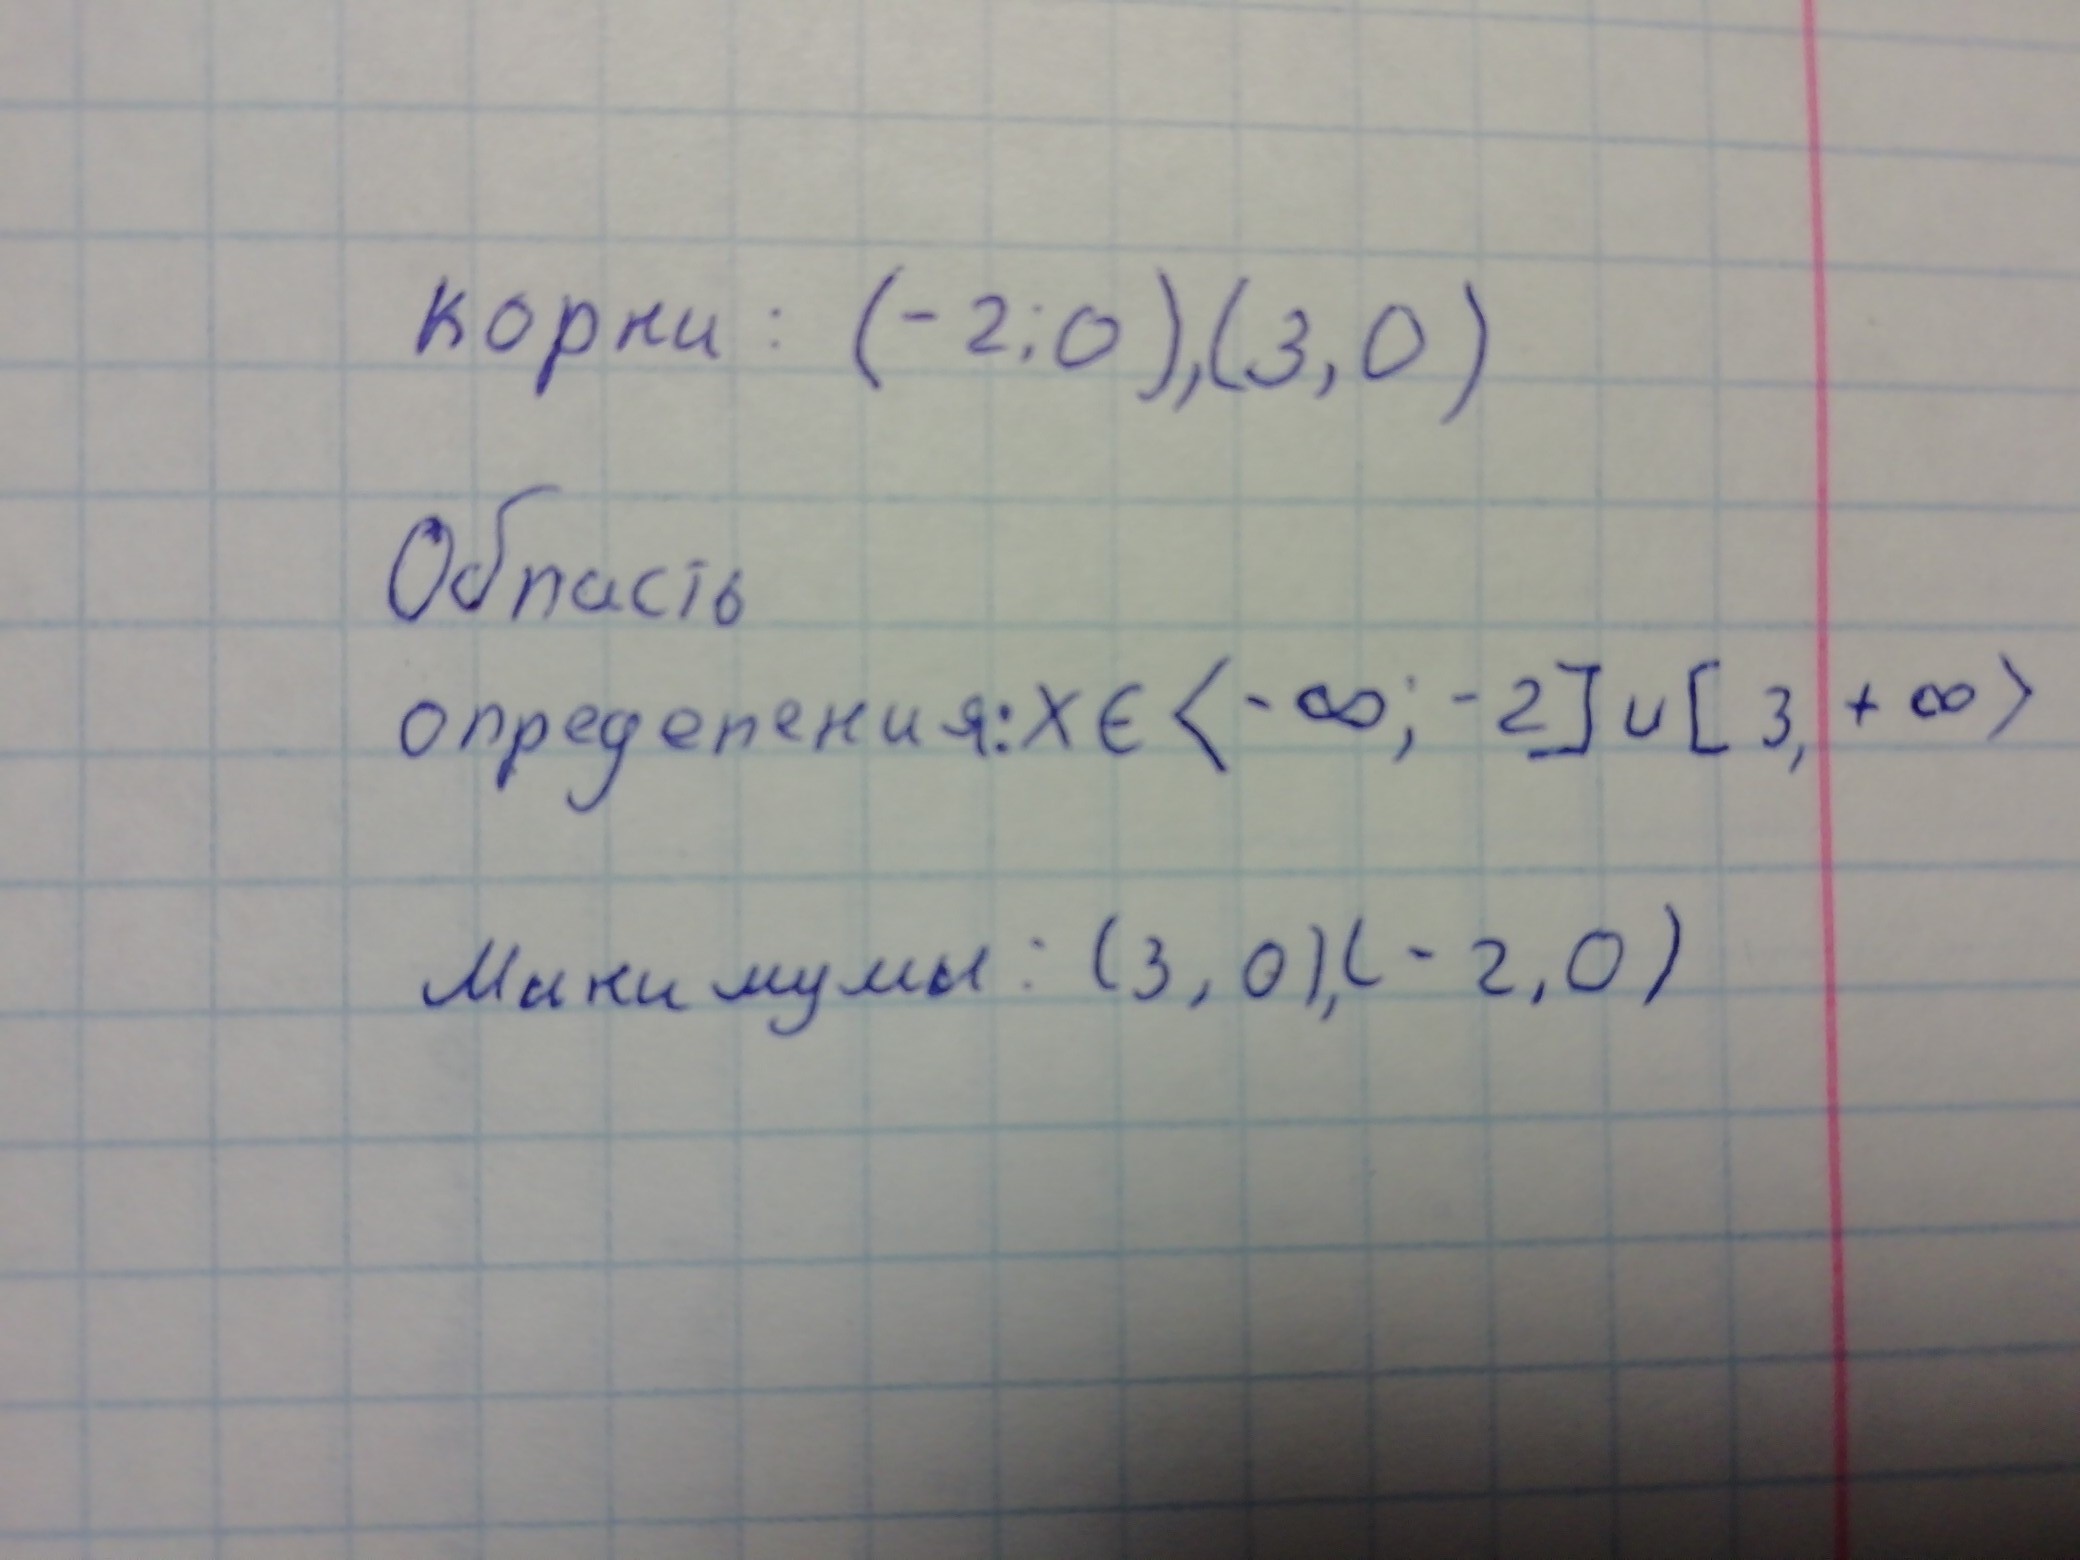 корни: (-2;0),(3,0)
Область
определения: X ∈ ⟨-∞; -2] ∪ [3, +∞⟩
Минимумы: (3,0),(-2,0)